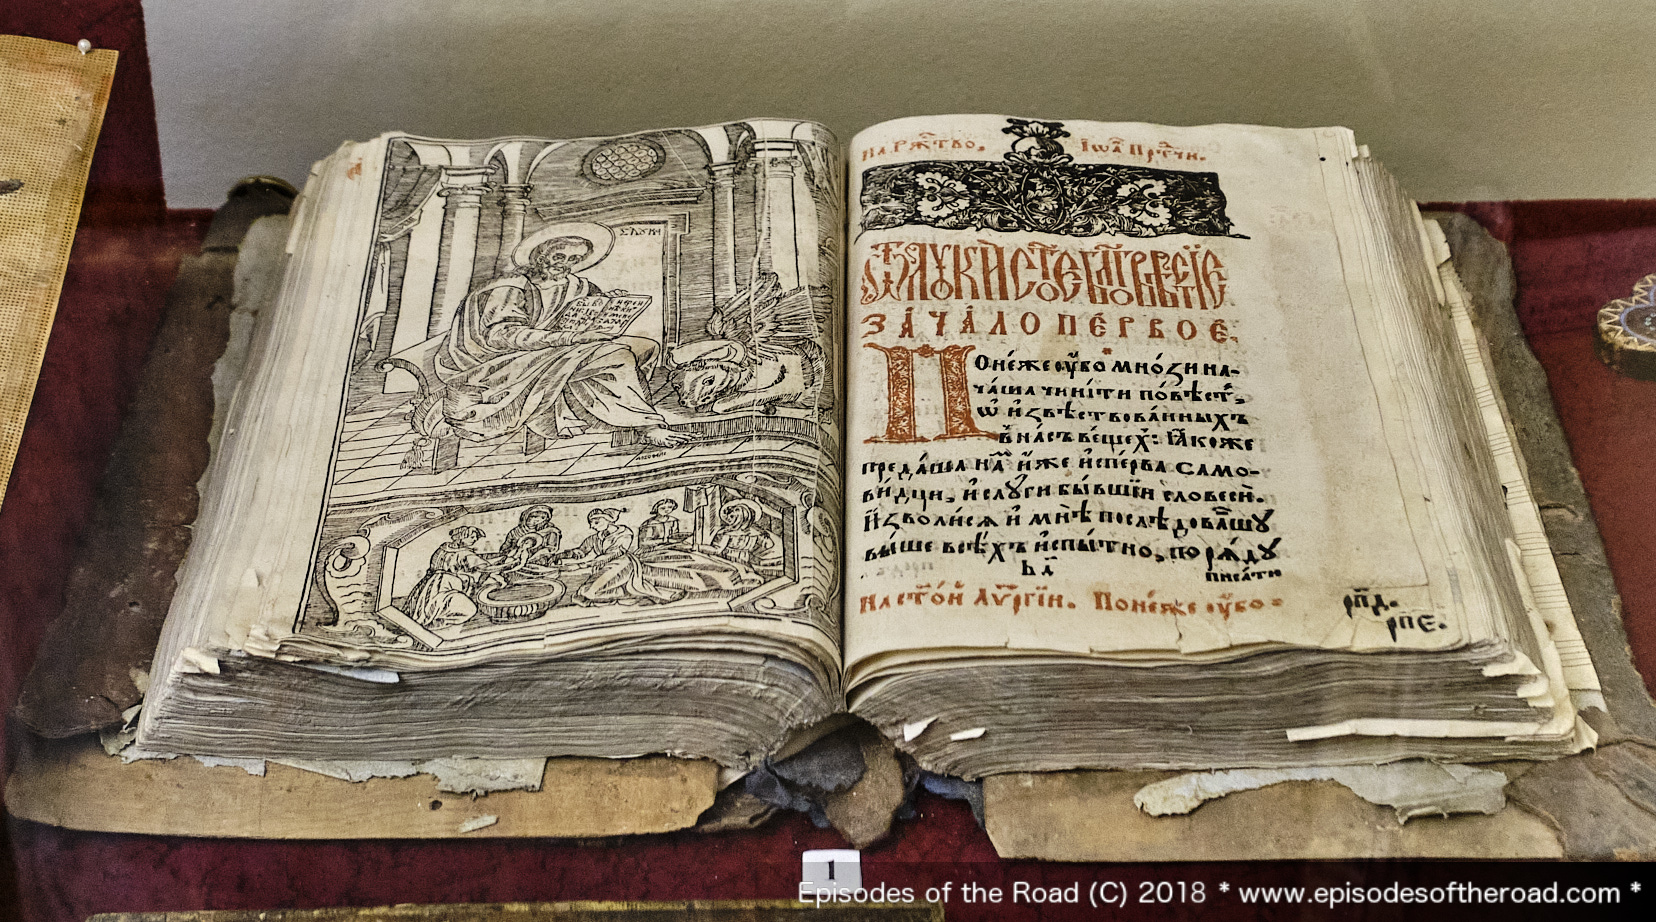 на рж҃тво, їѡа҃ прт҃чи.
Ѿ лꙋки ст҃ое бл҃говѣствованїе
за́ча́ло пе́рвое.
Поне́же ᲂу҆́бо мно́зи на-
ча́ша чини́ти по́вѣсть,
ѡ҆ и҆звѣ́ствованныхъ
въ на́съ ве́щехъ: ꙗ҆́коже
преда́ша на́мъ и҆́же и҆спе́рва само-
ви́дцы, и҆ слꙋги бы́вшїи словесѝ.
И҆зво́лисѧ и҆ мнѣ̀ послѣ́довавшꙋ
вы́ше всѣ̑хъ и҆спы́тно, по рѧ́дꙋ
писа́ти
на ст҃о́й лїтꙋргі́и. Поне́же ᲂу҆́бо
рп҃д.
рп҃є.
1
Episodes of the Road (C) 2018 * www.episodesoftheroad.com *